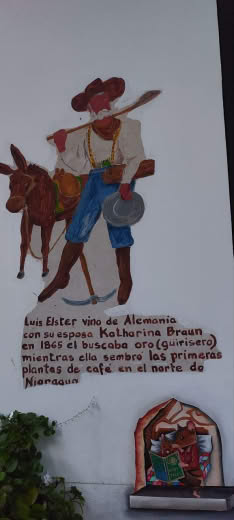 Luis Elster vino de Alemania
con su esposa Katharina Braun
en 1865 el buscaba oro (guirisero)
mientras ella sembro las primeras
plantas de café en el norte de
Nicaragua